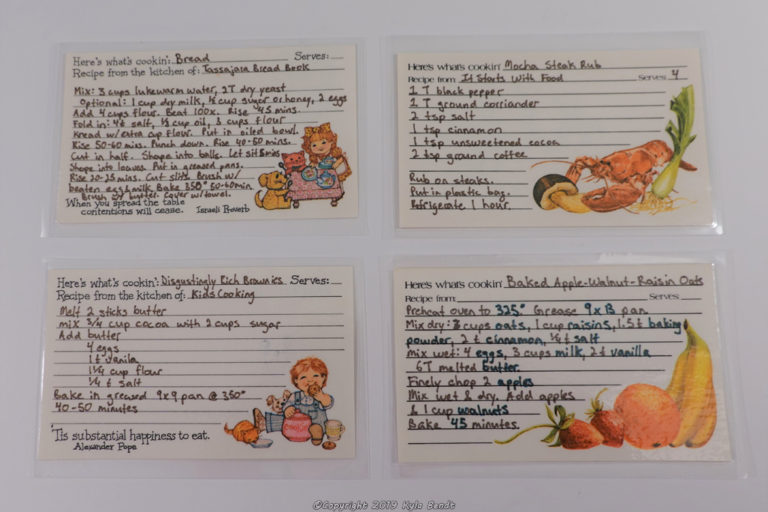 Here's what's cookin': Bread Serves:
Recipe from the kitchen of: Tassajara Bread Book
Mix: 3 cups lukewarm water, 2T dry yeast
Optional: 1 cup dry milk, ¼ cup sugar or honey, 2 eggs
Add 4 cups flour. Beat 100x. Rise 45 mins.
Fold in: 4t salt, ⅓ cup oil, 3 cups flour
Knead w/extra cup flour. Put in oiled bowl.
Rise 50-60 mins. Punch down. Rise 40-50 mins.
Cut in half. Shape into balls. Let sit 5 mins
Shape into loaves. Put in greased pans.
Rise 20-25 mins. Cut slits. Brush w/
beaten egg & milk. Bake 350° 50-60 min.
Brush w/ butter. Cover w/ towel.
When you spread the table
contentions will cease. Israeli Proverb
Here's what's cookin' Mocha Steak Rub
Recipe from It Starts With Food Serves 4
1 T black pepper
2 T ground corriander
2 tsp salt
1 tsp cinnamon
1 tsp unsweetened cocoa
2 tsp ground coffee
Rub on steaks.
Put in plastic bag.
Refrigerate 1 hour.
Here's what's cookin': Disgustingly Rich Brownies Serves:
Recipe from the kitchen of: Kids Cooking
Melt 2 sticks butter
mix 3/4 cup cocoa with 2 cups sugar
Add butter
4 eggs
1 t vanila
1¼ cup flour
¼ t salt
Bake in greased 9x9 pan @ 350°
40-50 minutes
'Tis substantial happiness to eat.
Alexander Pope
Cookies
Here's what's cookin' Baked Apple-Walnut-Raisin Oats
Recipe from: Serves
Preheat oven to 325° Grease 9x13 pan
Mix dry: 3 cups oats, 1 cup raisins, 1.5 t baking
powder, 2 t cinnamon, ½ t salt
Mix wet: 4 eggs, 3 cups milk, 2 t vanilla
6T melted butter
Finely chop 2 apples
Mix wet & dry. Add apples
& 1 cup walnuts
Bake 45 minutes
©Copyright 2019 Kyla Bendt